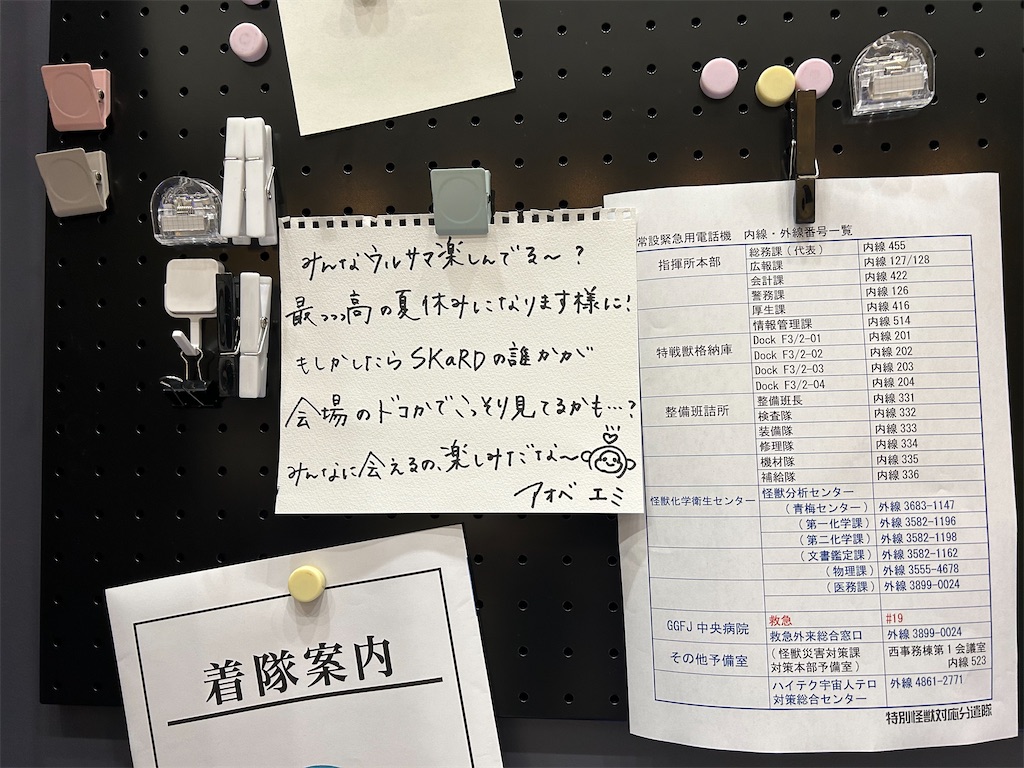 みんなウルサマ楽しんでる〜？
最っっっ高の夏休みになります様に！
もしかしたらSKaRDの誰かが
会場のドコかでこっそり見てるかも…？
みんなに会えるの、楽しみだな〜
アオベ エミ
常設緊急用電話機 内線・外線番号一覧
指揮所本部 総務課（代表） 内線 455
広報課 内線 127/128
会計課 内線 422
警務課 内線 126
厚生課 内線 416
情報管理課 内線 514
特戦獣格納庫 Dock F3/2-01 内線 201
Dock F3/2-02 内線 202
Dock F3/2-03 内線 203
Dock F3/2-04 内線 204
整備班詰所 整備班長 内線 331
検査隊 内線 332
装備隊 内線 333
修理隊 内線 334
機材隊 内線 335
補給隊 内線 336
怪獣化学衛生センター 怪獣分析センター
（青梅センター） 外線 3683-1147
（第一化学課） 外線 3582-1196
（第二化学課） 外線 3582-1198
（文書鑑定課） 外線 3582-1162
（物理課） 外線 3555-4678
（医務課） 外線 3899-0024
GGFJ 中央病院 救急 #19
救急外来総合窓口 外線 3899-0024
その他予備室 （怪獣災害対策課 西事務棟第1会議室
対策本部予備室） 内線 523
ハイテク宇宙人テロ 外線 4861-2771
対策総合センター
特別怪獣対応分遣隊
着隊案内